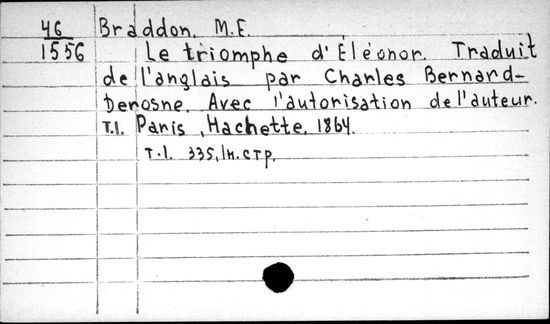 46 Braddon, M.E.
1556 Le triomphe d'Éléonor. Traduit
de l'anglais par Charles Bernard-
Derosne. Avec l'autorisation de l'auteur.
T.I. Paris, Hachette, 1864.
T.I. 335, IH. стр.